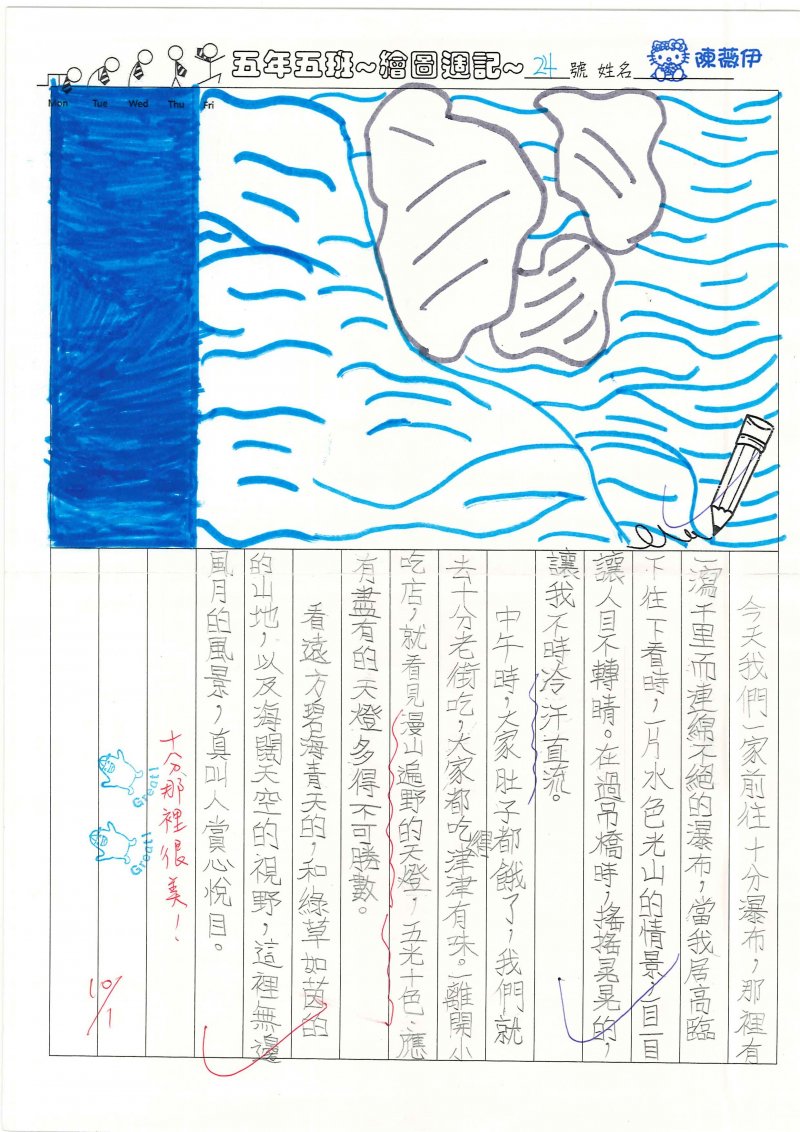 五年五班~繪圖週記~ 24 號 姓名 陳薇伊
Mon Tue Wed Thu Fri
今天我們一家前往十分瀑布，那裡有
一瀉千里而連綿不絕的瀑布，當我居高臨
下往下看時，一片水色光山的情景，一目一目
讓人目不轉睛。在過吊橋時，搖搖晃晃的，
讓我不時冷汗直流。
中午時，大家肚子都餓了，我們就
去十分老街吃，大家都吃得津津有珠。一離開小
吃店，就看見漫山遍野的天燈，五光十色、應
有盡有的天燈多得不可勝數。
看遠方碧海青天的，和綠草如茵的
的山地，以及海闊天空的視野，這裡無邊
風月的風景，真叫人賞心悅目。
十分那裡很美！
Great!
Great!
10/1